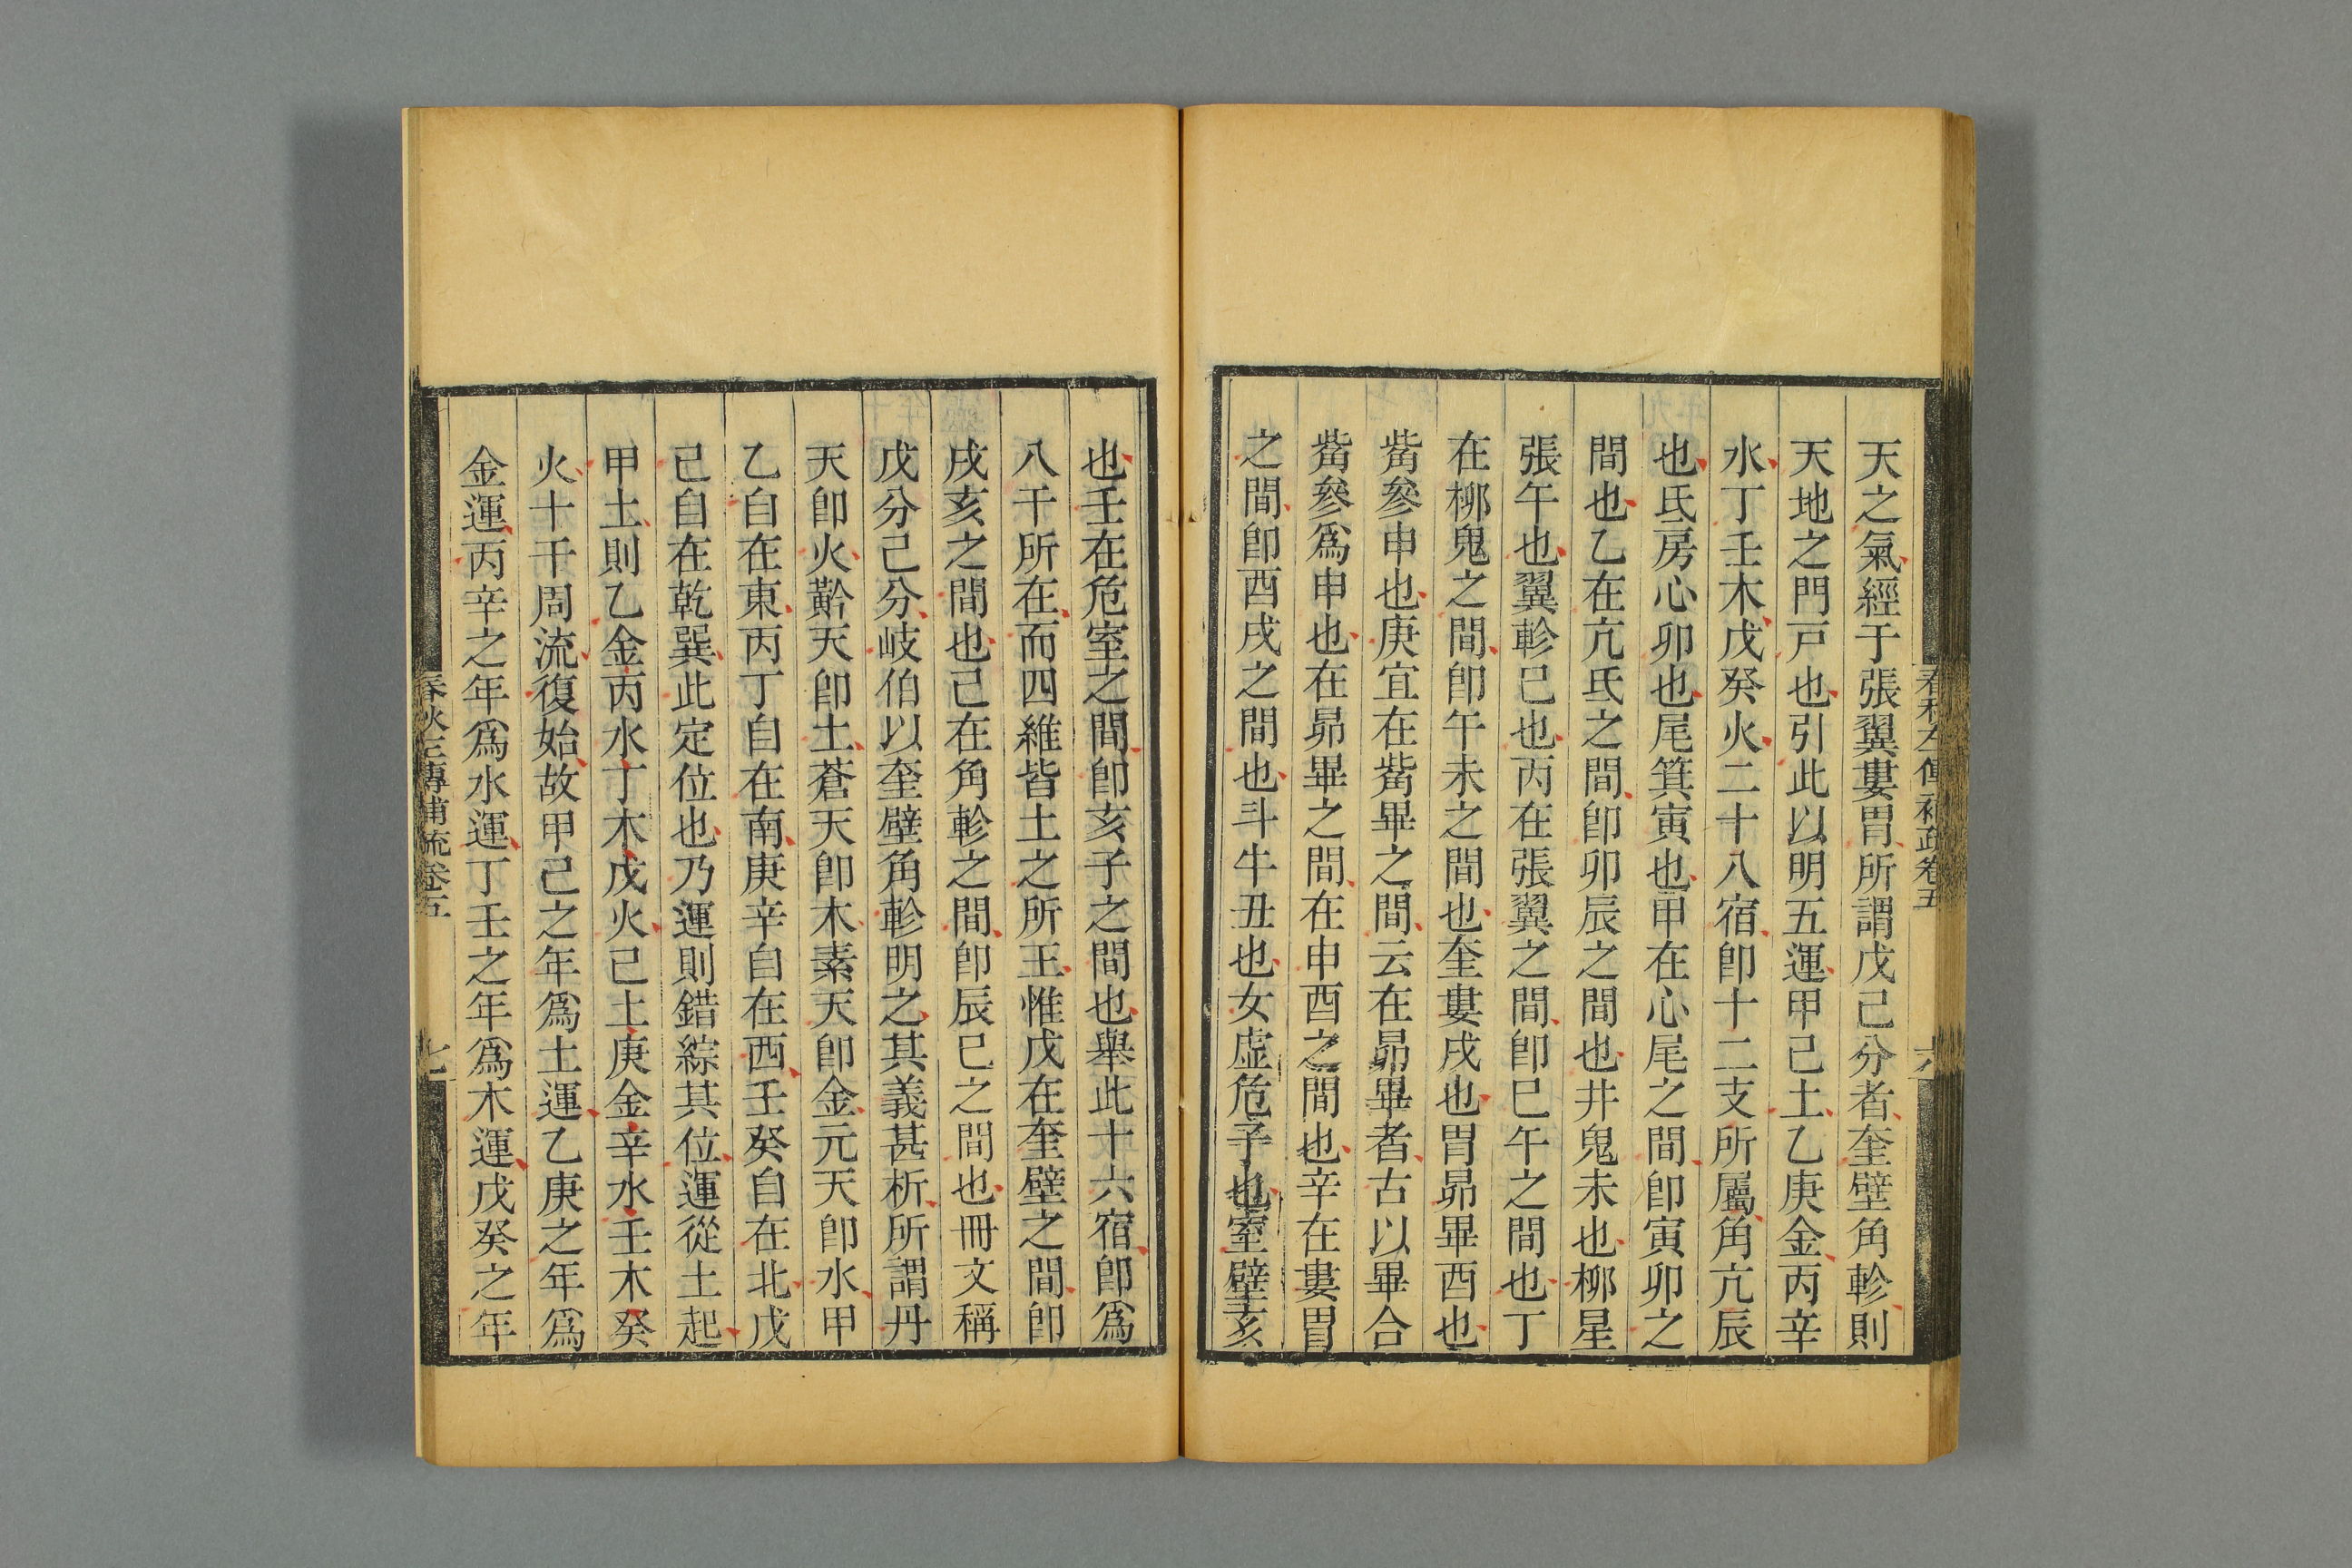 天之氣經于張翼婁胃所謂戊己分者奎壁角軫則
天地之門戸也引此以明五運甲己土乙庚金丙辛
水丁壬木戊癸火二十八宿卽十二支所屬角亢辰
也氐房心卯也尾箕寅也甲在心尾之間卽寅卯之
間也乙在亢氐之間卽卯辰之間也井鬼未也柳星
張午也翼軫巳也丙在張翼之間卽巳午之間也丁
在柳鬼之間卽午未之間也奎婁戌也胃昴畢酉也
觜參申也庚宜在觜畢之間云在昴畢者古以畢合
觜參爲申也在昴畢之間在申酉之間也辛在婁胃
之間卽酉戌之間也斗牛丑也女虛危子也室壁亥
春秋左傳補疏卷五
六
也壬在危室之間卽亥子之間也舉此十六宿卽爲
八干所在而四維皆土之所王惟戊在奎壁之間卽
戌亥之間也己在角軫之間卽辰巳之間也冊文稱
戊分己分岐伯以奎壁角軫明之其義甚析所謂丹
天卽火黅天卽土蒼天卽木素天卽金元天卽水甲
乙自在東丙丁自在南庚辛自在西壬癸自在北戊
己自在乾巽此定位也乃運則錯綜其位運從土起
甲土則乙金丙水丁木戊火己土庚金辛水壬木癸
火十干周流復始故甲己之年爲土運乙庚之年爲
金運丙辛之年爲水運丁壬之年爲木運戊癸之年
春秋左傳補疏卷五
七